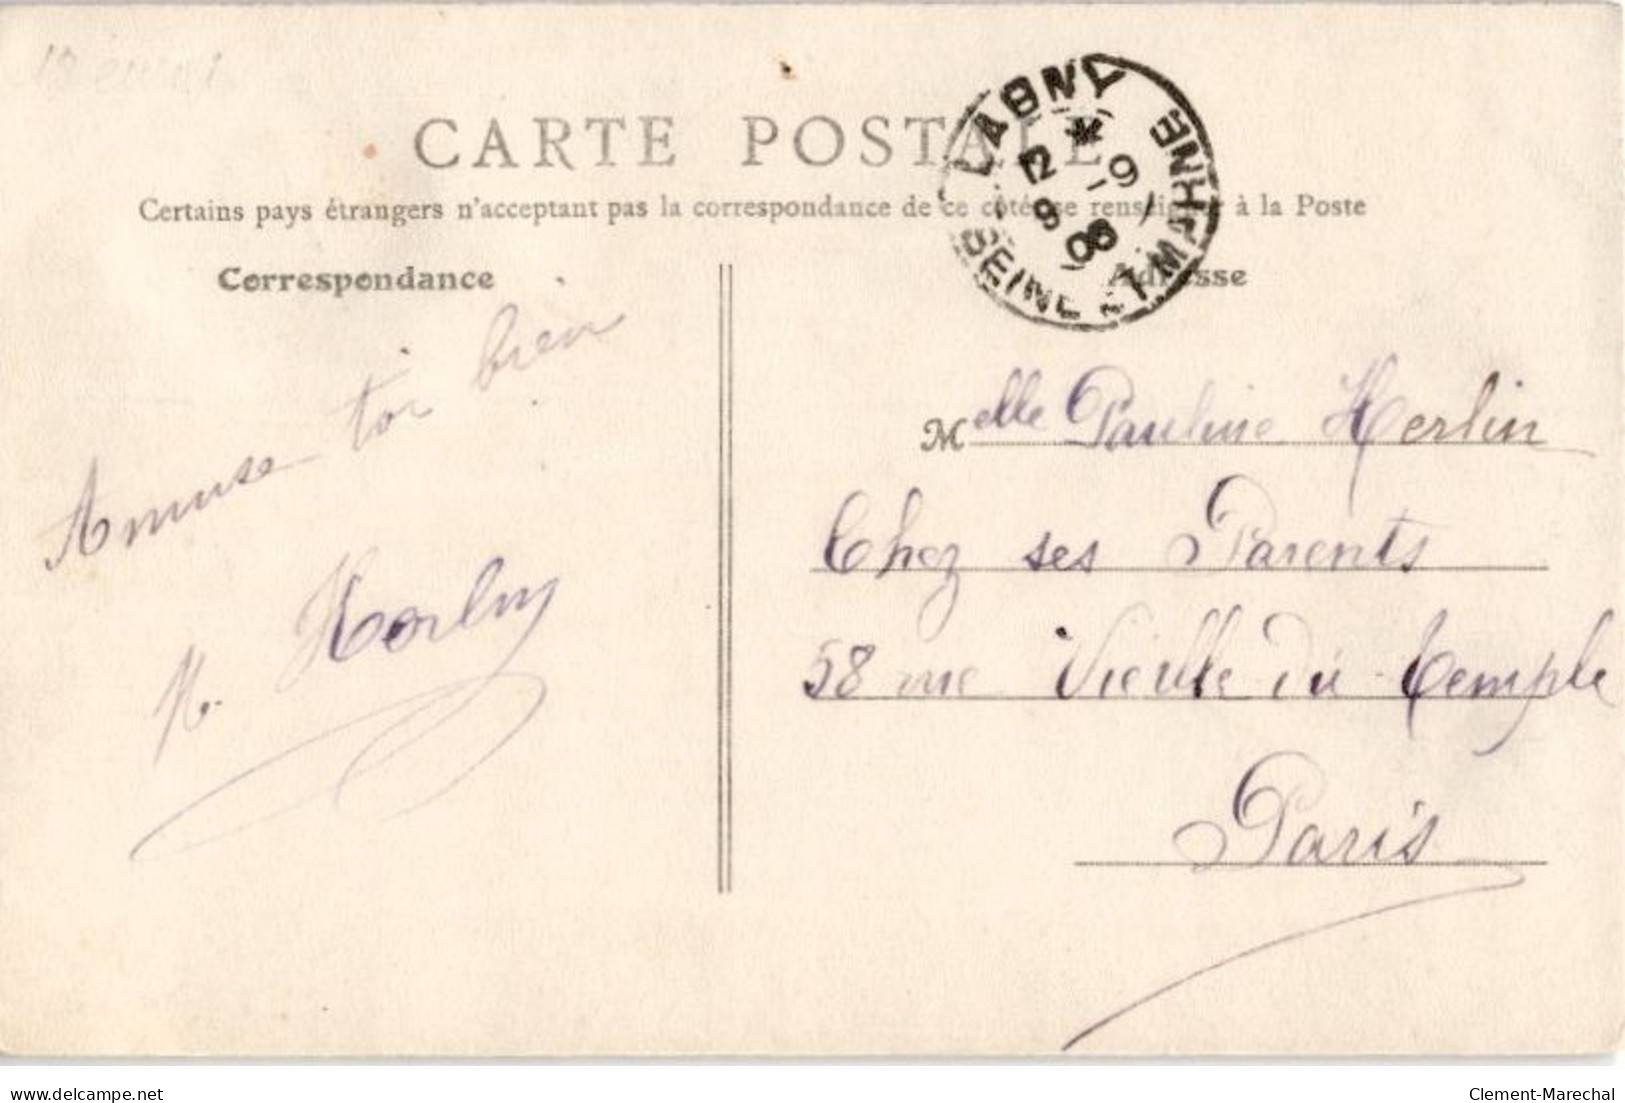 CARTE POSTALE
Certains pays étrangers n'acceptant pas la correspondance de ce côté, se renseigner à la Poste
Correspondance
Adresse
LAGNY
12 * 9
9 - 06
SEINE ET MARNE
Amuse toi bien
Melle Pauline Herlin
Chez ses Parents
58 rue Vieille du temple
Paris
delcampe.net
Clement-Marechal